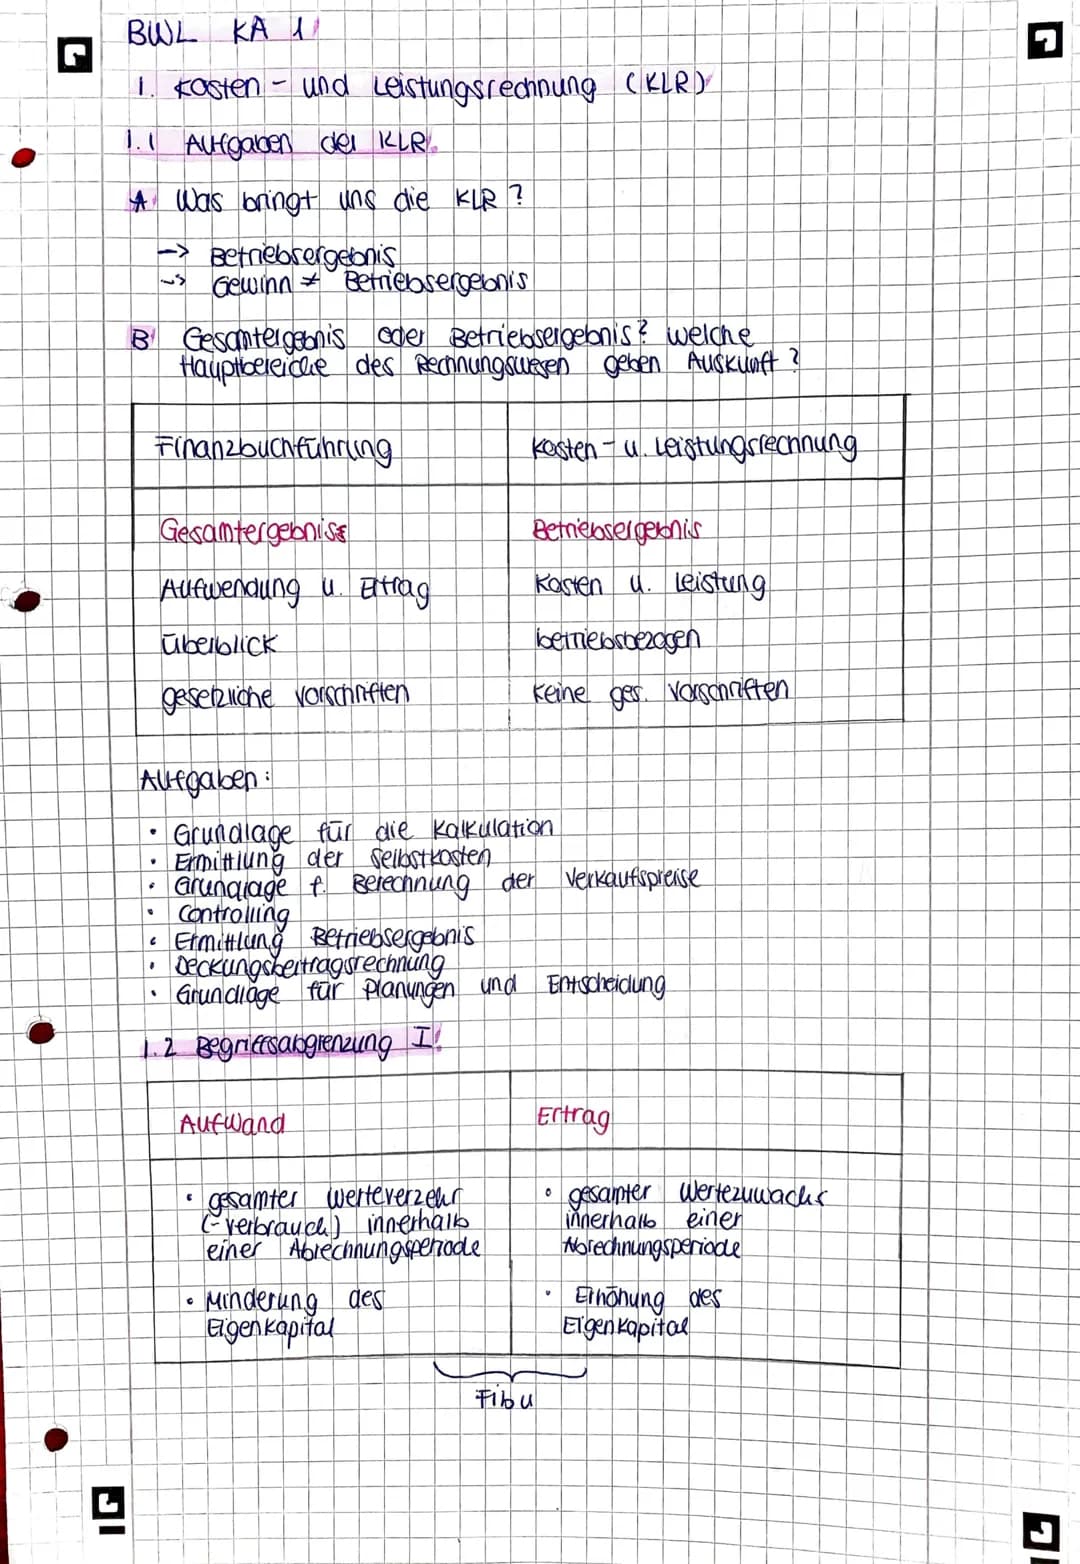 BWL KA 1
1. Kosten- und Leistungsrechnung (KLR)
1.1 Aufgaben der KLR
A Was bringt uns die KLR?
-> Betriebsergebnis
-> Gewinn ≠ Betriebsergebnis
B Gesamtergebnis oder Betriebsergebnis? Welche
Hauptbereiche des Rechnungswesen geben Auskunft?
Finanzbuchführung
Kosten- u. Leistungsrechnung
Gesamtergebnis
Betriebsergebnis
Aufwendung u. Ertrag
Kosten u. Leistung
Überblick
betriebsbezogen
gesetzliche Vorschriften
Keine ges. Vorschriften
Aufgaben:
• Grundlage für die Kalkulation
• Ermittlung der Selbstkosten
• Grundlage f. Berechnung der Verkaufspreise
• Controlling
• Ermittlung Betriebsergebnis
• Deckungsbeitragsrechnung
• Grundlage für Planungen und Entscheidung
1.2 Begriffsabgrenzung I
Aufwand
Ertrag
• gesamter Werteverzehr
(-verbrauch) innerhalb
einer Abrechnungsperiode
• gesamter Wertezuwachs
innerhalb einer
Abrechnungsperiode
• Minderung des
Eigenkapital
• Erhöhung des
Eigenkapital
Fibu